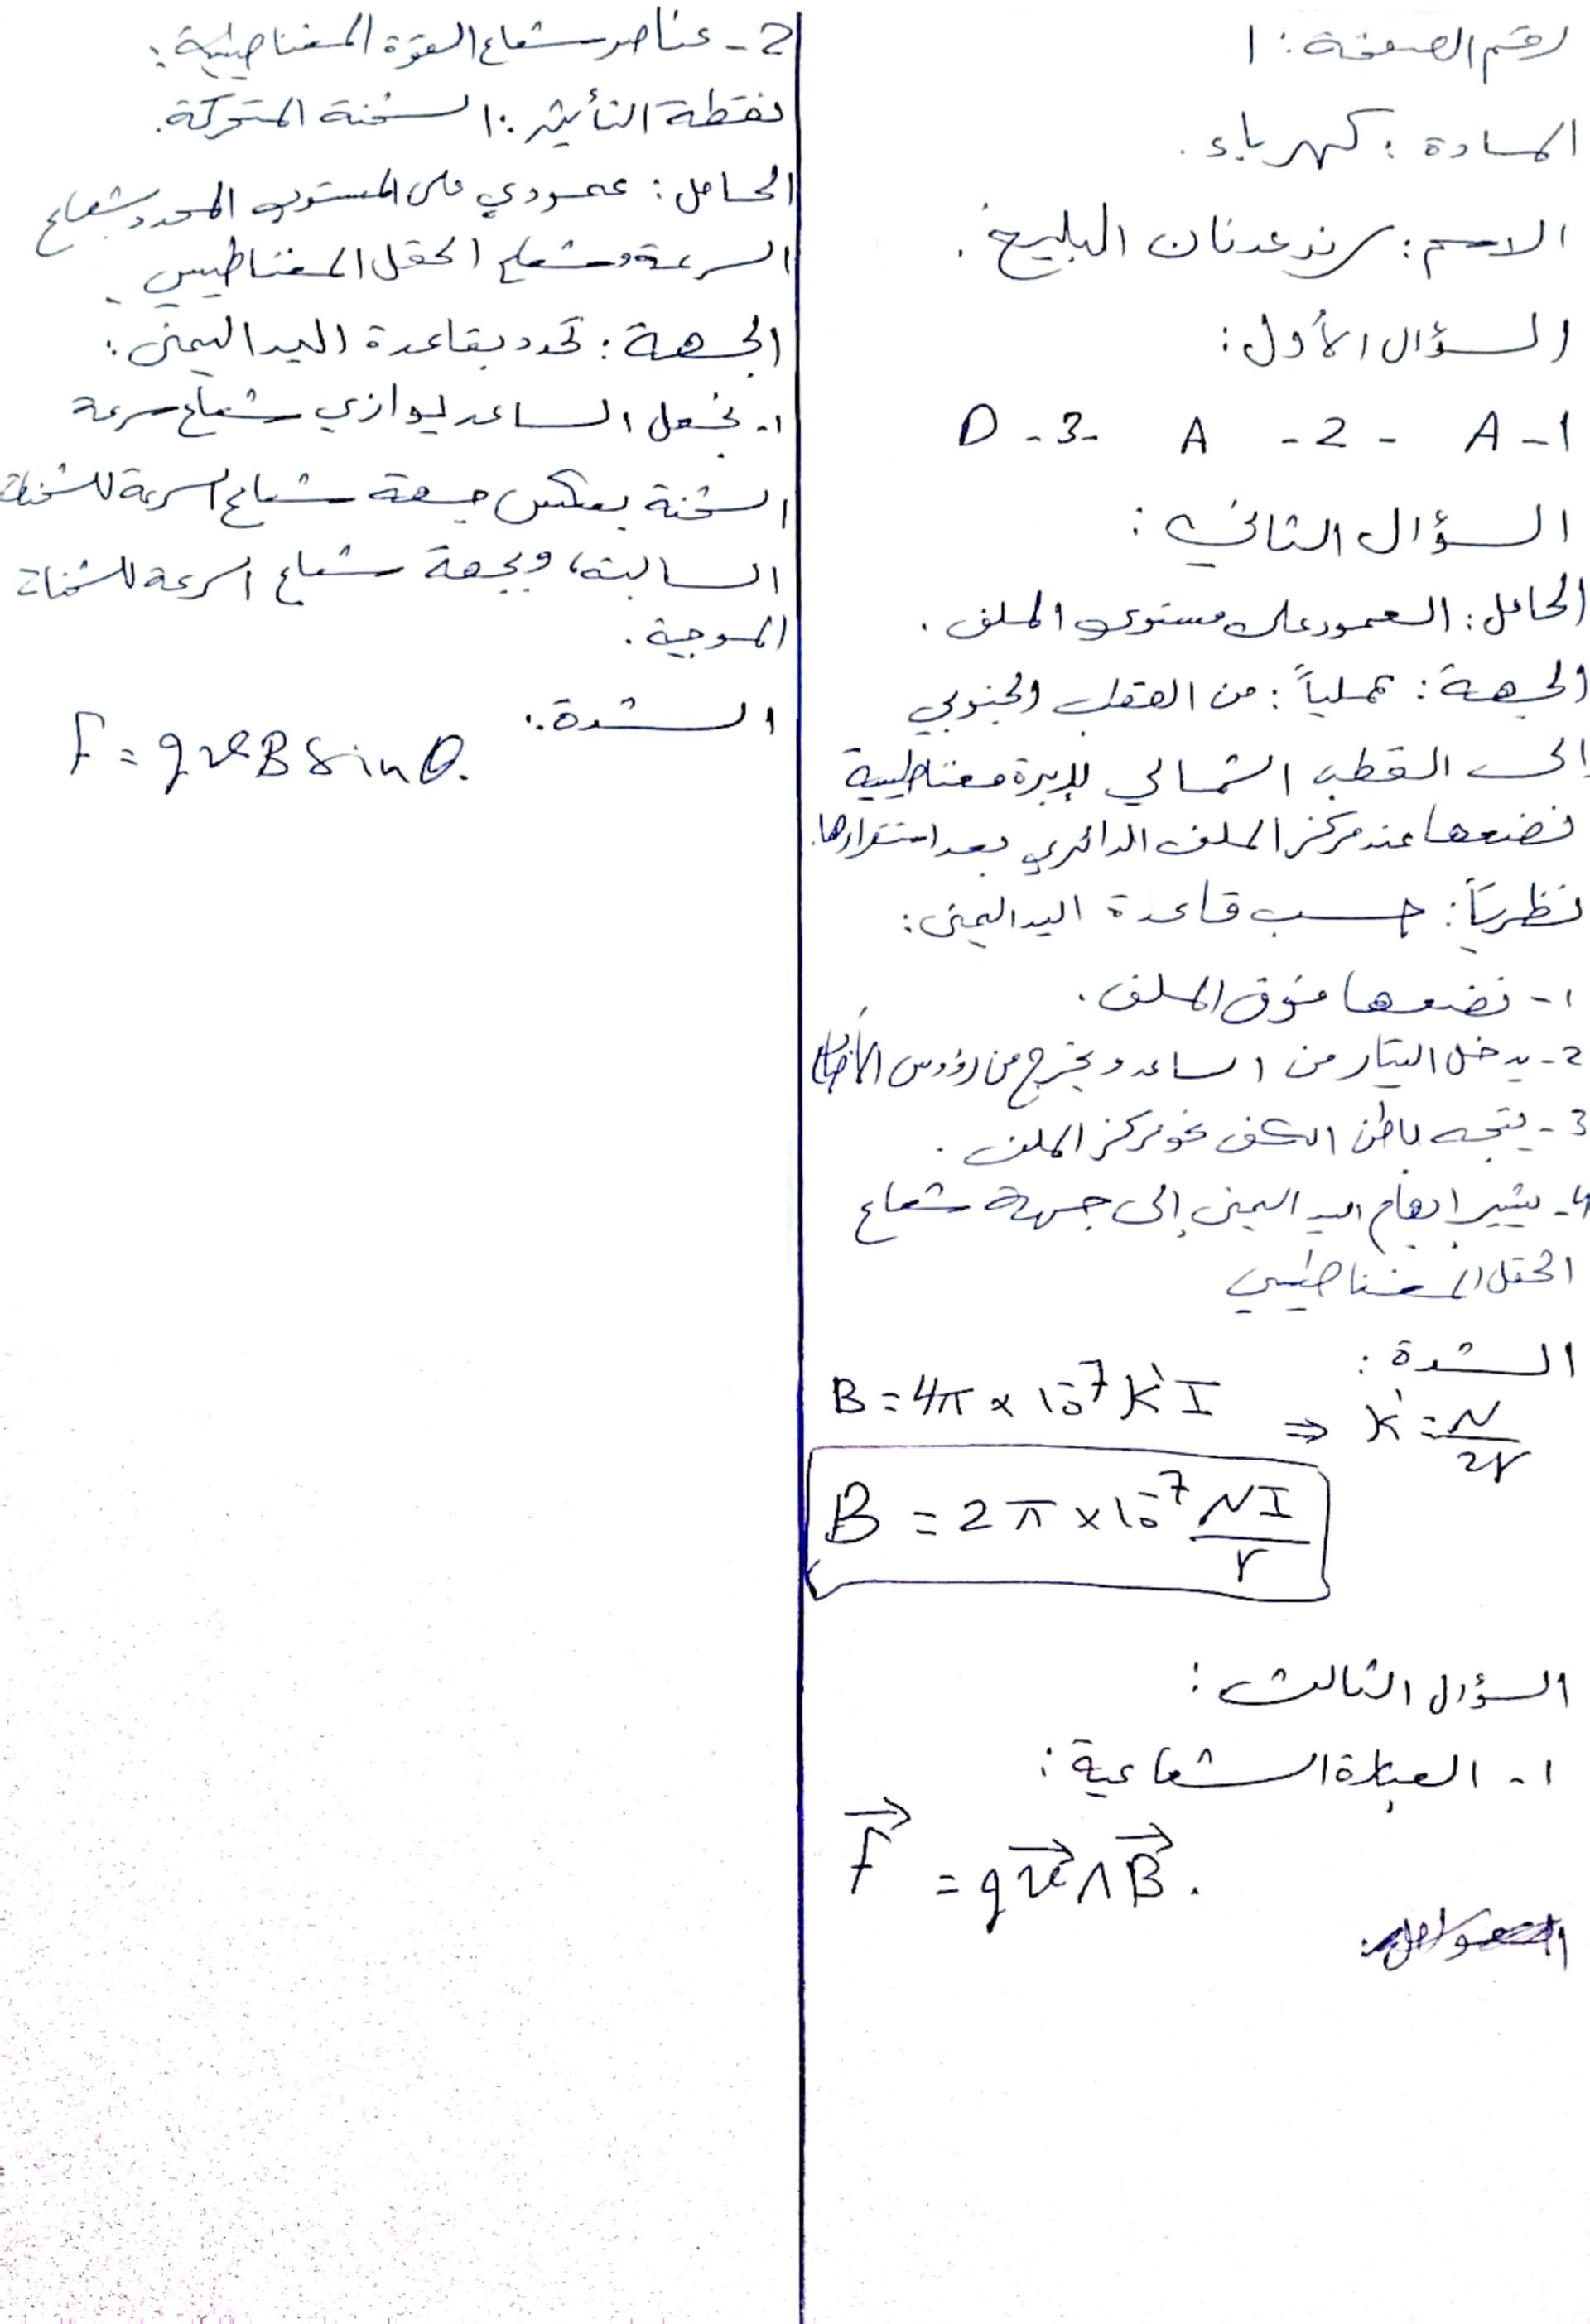 رقم الصفحة : 1
المادة : كهرباء .
الاسم : رند عدنان البليخ .
السؤال الأول :
1 - A - 2 - A - 3 - D
السؤال الثاني :
الحامل : العمود على مستوي الملف .
الجهة : عملياً : من القطب الجنوبي
إلى القطب الشمالي لإبرة مغناطيسية
نضعها عند مركز الملف الدائري بعد استقرارها .
نظرياً : حسب قاعدة اليد اليمنى :
1 - نضعها فوق الملف .
2 - يدخل التيار من الساعد ويخرج من رؤوس الأصابع
3 - يتجه باطن الكف نحو مركز الملف .
4 - يشير ابهام اليد اليمنى إلى جهة شعاع
الحقل المغناطيسي
الشدة :
B = 4π × 10⁻⁷ k' I ⇒ k' = N/2r
B = 2π × 10⁻⁷ NI/r
السؤال الثالث :
1 - العبارة الشعاعية :
F⃗ = q v⃗ ∧ B⃗ .
2 - عناصر شعاع القوة المغناطيسية :
نقطة التأثير : الشحنة المتحركة .
الحامل : عمودي على المستوي المحدد بشعاع
السرعة وشعاع الحقل المغناطيسي .
الجهة : تحدد بقاعدة اليد اليمنى :
1 - نجعل الساعد يوازي شعاع سرعة
الشحنة بعكس جهة شعاع السرعة للشحنات
السالبة ، وبجهة شعاع السرعة للشحنات
الموجبة .
الشدة : F = q v B sin θ .